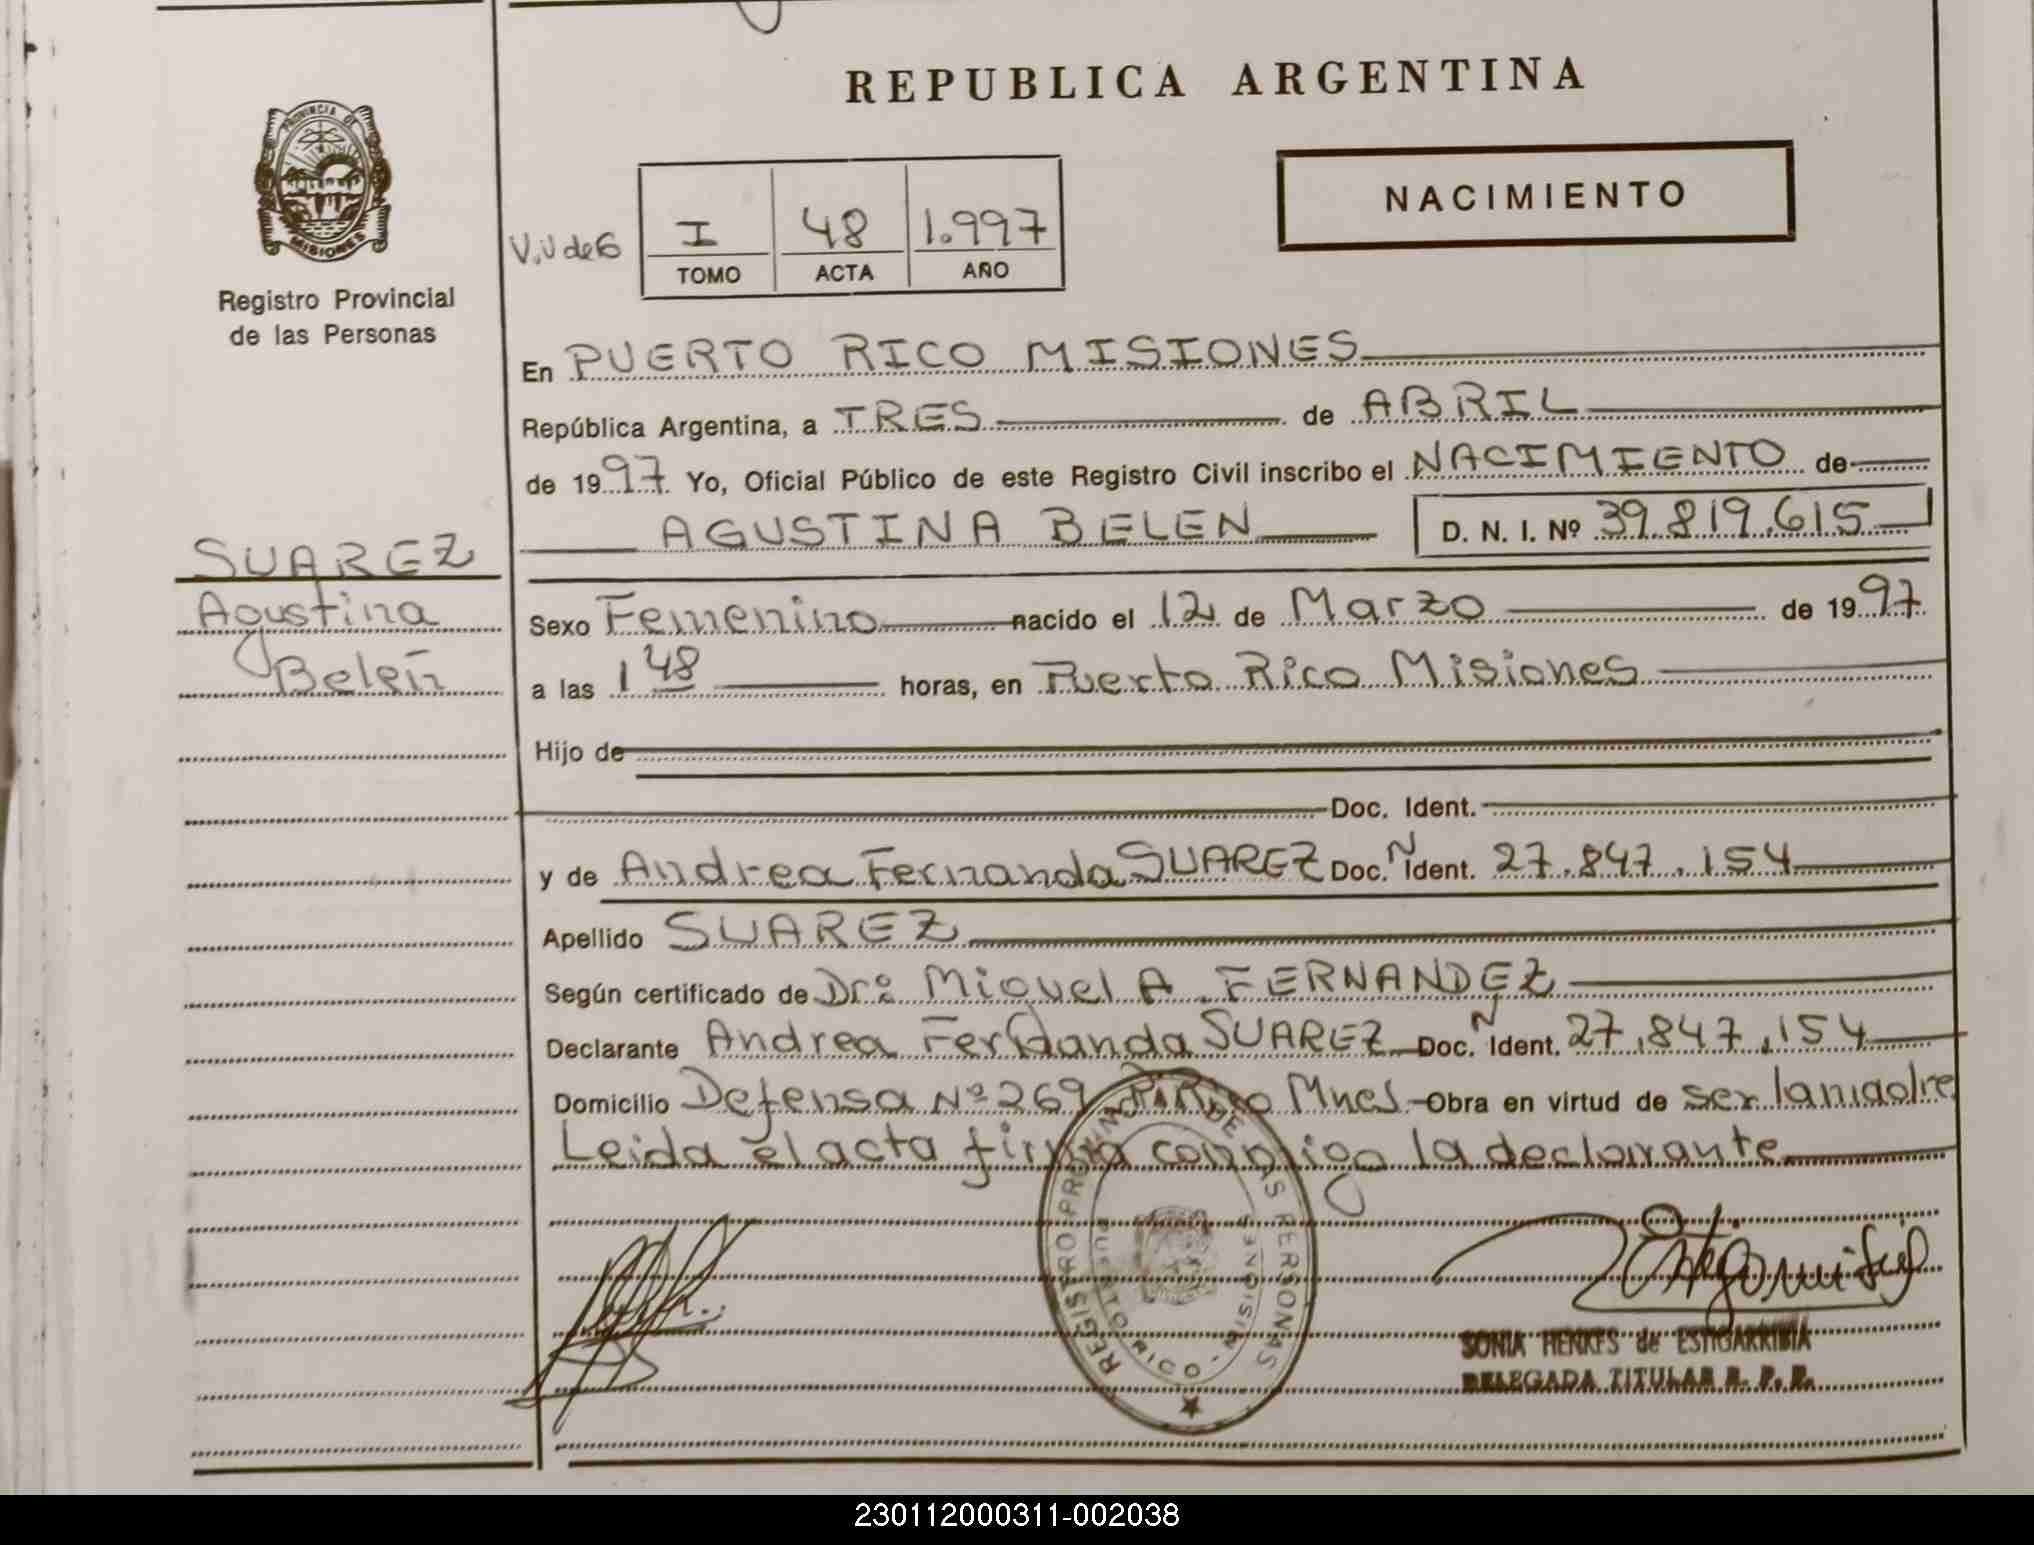 REPUBLICA ARGENTINA
PROVINCIA DE
MISIONES
NACIMIENTO
V.U de G
I 48 1.997
TOMO ACTA AÑO
Registro Provincial
de las Personas
En PUERTO RICO MISIONES
República Argentina, a TRES de ABRIL
de 1997 Yo, Oficial Público de este Registro Civil inscribo el NACIMIENTO de
AGUSTINA BELEN D. N. I. Nº 39.819.615
SUAREZ
Agustina
Belén
Sexo Femenino nacido el 12 de Marzo de 1997
a las 1 48 horas, en Puerto Rico Misiones
Hijo de
Doc. Ident.
y de Andrea Fernanda SUAREZ Doc. Ident. 27.847.154
Apellido SUAREZ
Según certificado de Dr: Miguel A. FERNANDEZ
Declarante Andrea Fernanda SUAREZ Doc. Ident. 27.847.154
Domicilio Defensa Nº 269 P. Rico Mnes Obra en virtud de ser la madre
Leida el acta firma conmigo la declarante
REGISTRO PROVINCIAL DE LAS PERSONAS
PUERTO RICO - MISIONES
SONIA HENKES de ESTIGARRIBIA
DELEGADA TITULAR R. P. P.
230112000311-002038